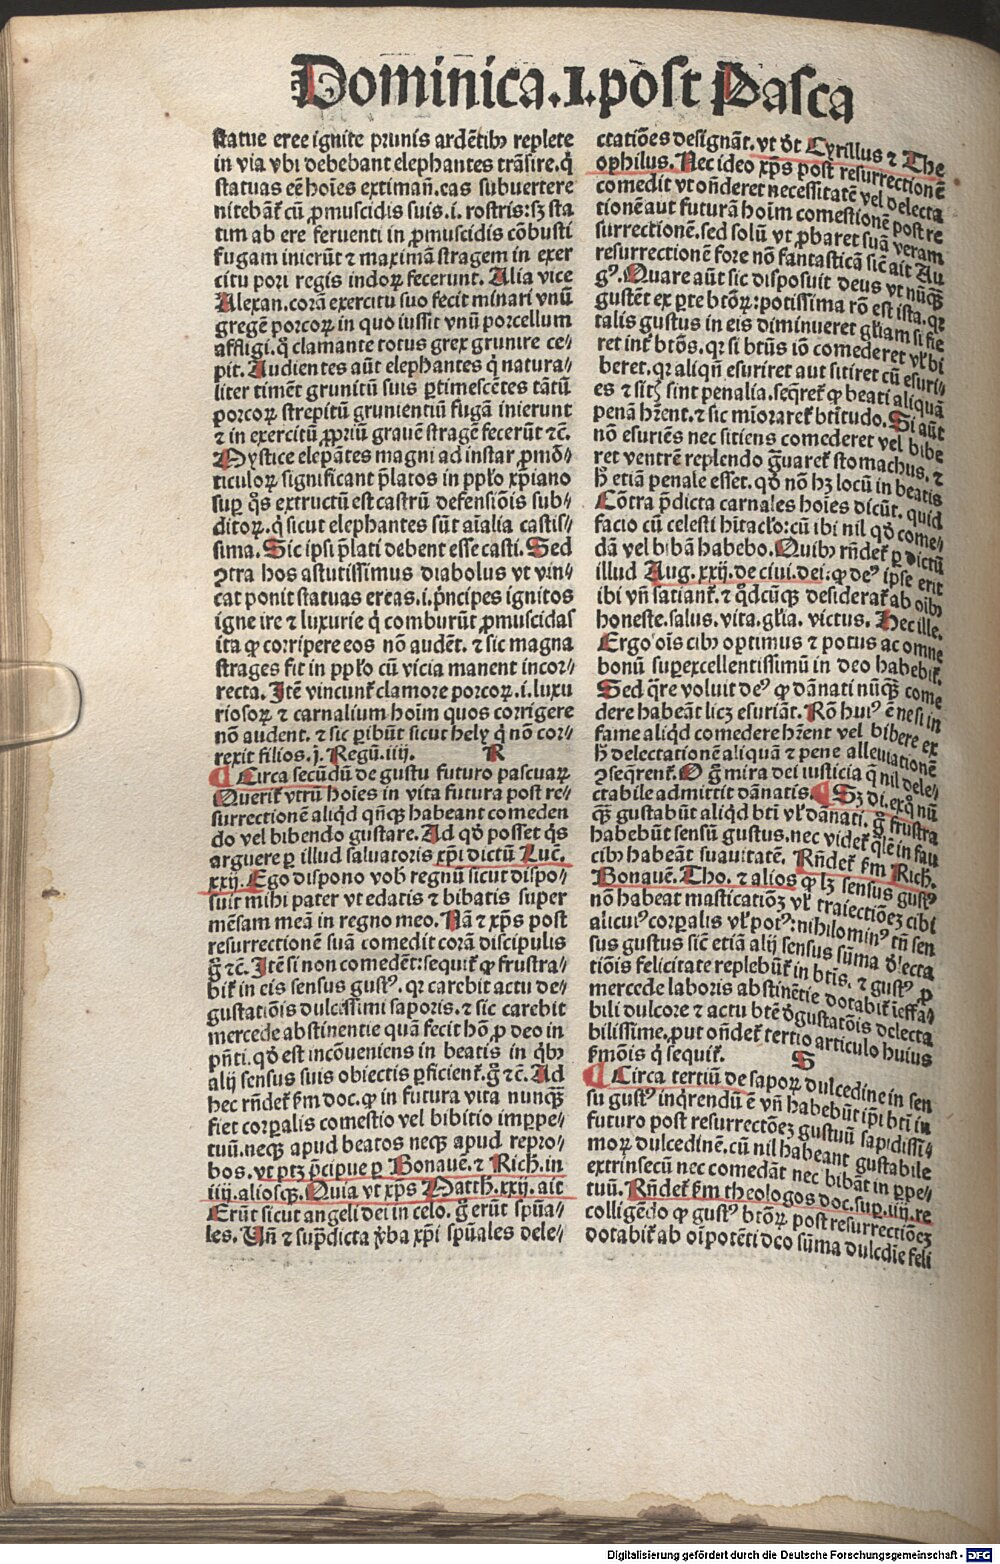 Dominica.I.post Pasca
statue eree ignite prunis ardētibꝫ replete
in via vbi debebant elephantes trāsire.q̇
statuas eē hoīes extimañ.eas subuertere
nitebāt̃ cū ꝓmuscidis suis.i.rostris:sꝫ sta
tim ab ere feruenti in ꝓmuscidis cōbusti
fugam inierūt ⁊ maximā stragem in exer
citu pori regis indoꝝ fecerunt. Alia vice
Alexan.corā exercitu suo fecit minari vnū
gregē porcoꝝ in quo iussit vnū porcellum
affligi.q̊ clamante totus grex grunire ce⸗
pit. Audientes aūt elephantes q̇ natura⸗
liter timēt grunitū suis ꝑtimescētes tātū
porcoꝝ strepitū grunientiū fugā inierunt
⁊ in exercitū ꝓpriū grauē stragē fecerūt ⁊c̄.
Mystice elepātes magni ad instar ꝓmō⸗
ticuloꝝ significant p̄latos in ppl̃o xp̄iano
suꝑ q̊s extructū est castrū defensiōis sub⸗
ditoꝝ.q̇ sicut elephantes sūt aīalia castis⸗
sima. Sic ipsi p̄lati debent esse casti. Sed
ꝯtra hos astutissimus diabolus vt vin⸗
cat ponit statuas ereas.i.p̄ncipes ignitos
igne ire ⁊ luxurie q̇ comburūt ꝓmuscidas
ita ꝙ corripere eos nō audēt. ⁊ sic magna
strages fit in ppl̃o cū vicia manent incor⸗
recta. Itē vincunt̃ clamore porcoꝝ.i.luxu
riosoꝝ ⁊ carnalium hoīm quos corrigere
nō audent. ⁊ sic ꝑibūt sicut hely q̇ nō cor⸗
rexit filios.j. Regū.iiij. R
¶ Circa secūdū de gustu futuro pascuaꝝ
Querit̃ vtrū hoīes in vita futura post re⸗
surrectionē aliqd̓ qn̄qꝫ habeant comeden
do vel bibendo gustare. Ad qd̓ posset q̇s
arguere ꝑ illud saluatoris xp̄i dictū Luc̄.
xxij. Ego dispono vob̓ regnū sicut dispo⸗
suit mihi pater vt edatis ⁊ bibatis super
mēsam meā in regno meo. Nā ⁊ xp̄s post
resurrectionē suā comedit corā discipulis
g̊ ⁊c̄. Itē si non comedēt:sequit̃ ꝙ frustra⸗
bit̃ in eis sensus gustꝰ. qꝛ carebit actu de⸗
gustatiōis dulcissimi saporis. ⁊ sic carebit
mercede abstinentie quā fecit hō ꝓ deo in
pn̄ti. qd̓ est incōueniens in beatis in q̇bꝫ
alij sensus suis obiectis ꝑficient̃.g̊ ⁊c̄. Ad
hec rn̄det̃ fm doc.ꝙ in futura vita nunqꝫ̄
fiet corꝑalis comestio vel bibitio imꝑpe⸗
tuū.neqꝫ apud beatos neqꝫ apud repro⸗
bos. vt ptꝫ p̄cipue ꝑ Bonauē. ⁊ Rich̓. in
iiij.aliosqꝫ. Quia vt xp̄s Matth̓.xxij. ait
Erūt sicut angeli dei in celo. g̊ erūt spūa⸗
les. Vn̄ ⁊ sup̄dicta v̓ba xp̄i spūales dele⸗
ctatiōes designāt.vt d̓t Cyrillus ⁊ The
ophilus. Nec ideo xp̄s post resurrectionē
comedit vt on̄deret necessitatē vel delecta
tionē aut futurā hoīm comestionē post re
surrectionē.sed solū vt ꝓbaret suā veram
resurrectionē fore nō fantasticā sic̄ ait Au
gꝰ. Quare aūt sic disposuit deus vt nūqꝫ̄
gustēt ex ꝑte btōꝝ:potissima rō est ista. qꝛ
talis gustus in eis diminueret gl̓iam si fie
ret int̓ btōs. qꝛ si btūs iō comederet vl̓ bi
beret. qꝛ aliqn̄ esuriret aut sitiret cū esuri⸗
es ⁊ sitꝭ sint penalia.seq̄ret̃ ꝙ beati aliquā
penā hr̄ent. ⁊ sic mīoraret̃ btītudo. Si aūt
nō esuriēs nec sitiens comederet vel bibe
ret ventrē replendo g̊uaret̃ stomachus. ⁊
h̓ etiā penale esset. qd̓ nō hꝫ locū in beatis
Cōtra p̄dicta carnales hoīes dicūt. quid
facio cū celesti hītac̄lo:cū ibi nil qd̓ come⸗
dā vel bibā habebo. Quibꝫ rn̄det̃ ꝑ dictū
illud Aug.xxij.de ciui.dei.ꝙ deꝰ ipse erit
ibi vn̄ satiant̃. ⁊ q̊dcūqꝫ desiderat̃ ab oībꝫ
honeste.salus.vita.gl̓ia. victus. Hec ille.
Ergo oīs cibꝫ optimus ⁊ potus ac omne
bonū suꝑexcellentissimū in deo habebit̃.
Sed q̄re voluit deꝰ ꝙ dānati nūqꝫ̄ come
dere habeāt licꝫ esuriāt. Rō huiꝰ ē ne si in
fame aliqd̓ comedere hr̄ent vel bibere ex
h̓ delectationē aliquā ⁊ pene alleuiationē
ꝯseq̄rent̃. O g̊ mira dei iusticia q̄ nil dele⸗
ctabile admittit dānatis. ¶ Sꝫ di.exq̊ nū
qꝫ̄ gustabūt aliqd̓ btī vl̓ dānati. g̊ frustra
habebūt sensū gustus.nec videt̃ q̄lē in fau
cibꝫ habeāt suauitatē. Rn̄det̃ fm Rich̓.
Bonauē. Tho. ⁊ alios ꝙ lꝫ sensus gustꝰ
nō habeat masticatiōeꝫ vl̓ traiectiōeꝫ cibi
alicuiꝰ corꝑalis vl̓ potꝰ: nihilominꝰ tn̄ sen
sus gustus sic̄ etiā alij sensus sūma d̓lecta
tiōis felicitate replebūt̃ in btīs. ⁊ gustꝰ ꝓ
mercede laboris abstinētie dotabit̃ ieffa⸗
bili dulcore ⁊ actu btē d̓gustatōis delecta
bilissime.put on̄det̃ tertio articulo huius
s̓mōis q̇ sequit̃. S
¶ Circa tertiū de sapoꝝ dulcedine in sen
su gustꝰ inq̇rendū ē vn̄ habebūt ip̄i btī in
futuro post resurrectōeꝫ gustuū sapidissi⸗
moꝝ dulcedinē.cū nil habeant gustabile
extrinsecū nec comedāt nec bibāt in ꝑpe⸗
tuū. Rn̄det̃ fm theologos doc.suꝑ.iiij.re
colligēdo ꝙ gustꝰ btōꝝ post resurrectiōeꝫ
dotabit̃ ab oīpotēti deo sūma dulcdīe feli
Digitalisierung gefördert durch die Deutsche Forschungsgemeinschaft - DFG